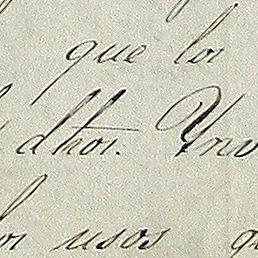 que los
dhos. Ynv
los usos q